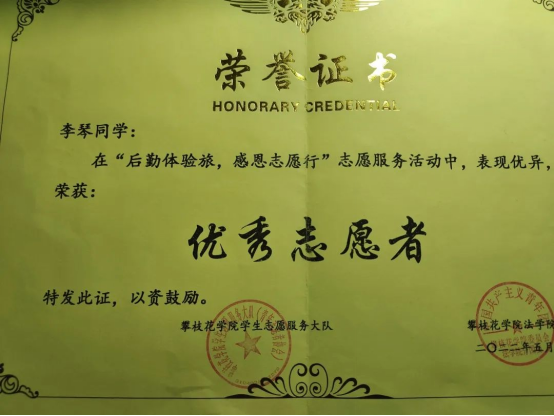 荣誉证书
HONORARY CREDENTIAL
李琴同学：
在“后勤体验旅，感恩志愿行”志愿服务活动中，表现优异，
荣获：
优秀志愿者
特发此证，以资鼓励。
攀枝花学院学生志愿服务大队
攀枝花学院法学院
二〇二二年五月